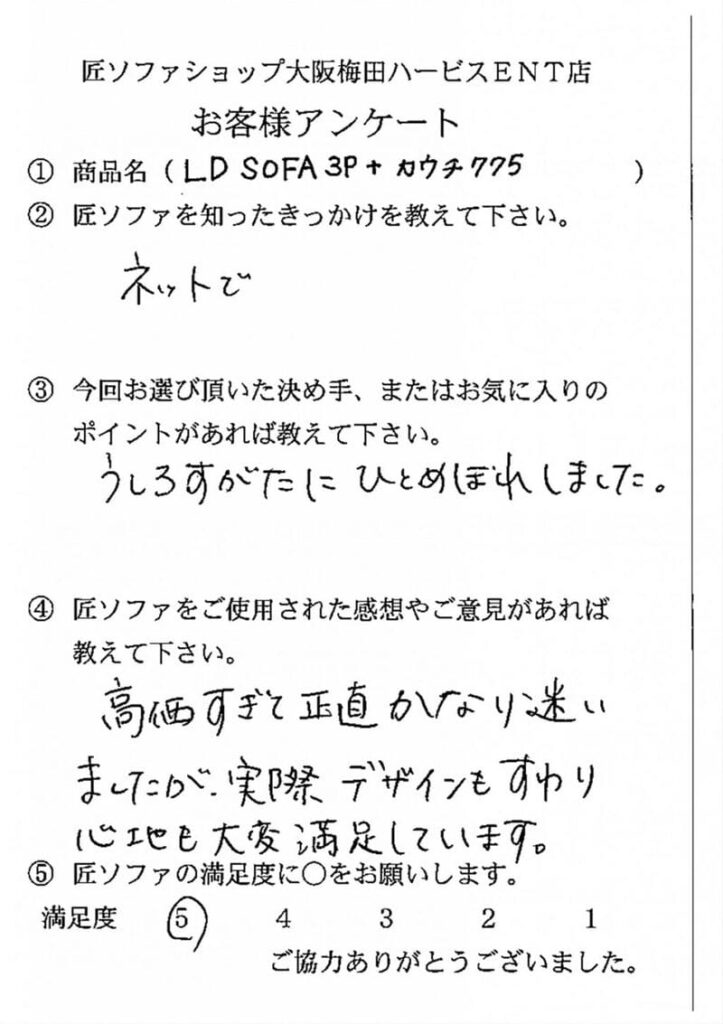 匠ソファショップ大阪梅田ハービスENT店
お客様アンケート
① 商品名（LD SOFA 3P + カウチ775）
② 匠ソファを知ったきっかけを教えて下さい。
ネットで
③ 今回お選び頂いた決め手、またはお気に入りの
ポイントがあれば教えて下さい。
うしろすがたに ひとめぼれしました。
④ 匠ソファをご使用された感想やご意見があれば
教えて下さい。
高価すぎて正直かなり迷い
ましたが、実際デザインもすわり
心地も大変満足しています。
⑤ 匠ソファの満足度に〇をお願いします。
満足度 5 4 3 2 1
ご協力ありがとうございました。